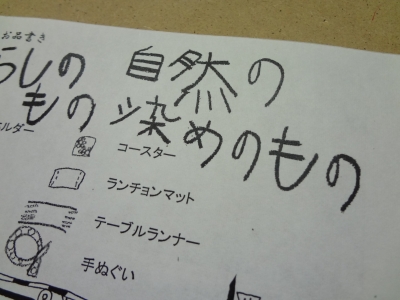 お品書き
らしの
もの
ルダー
自然の
染めのもの
コースター
ランチョンマット
テーブルランナー
手ぬぐい